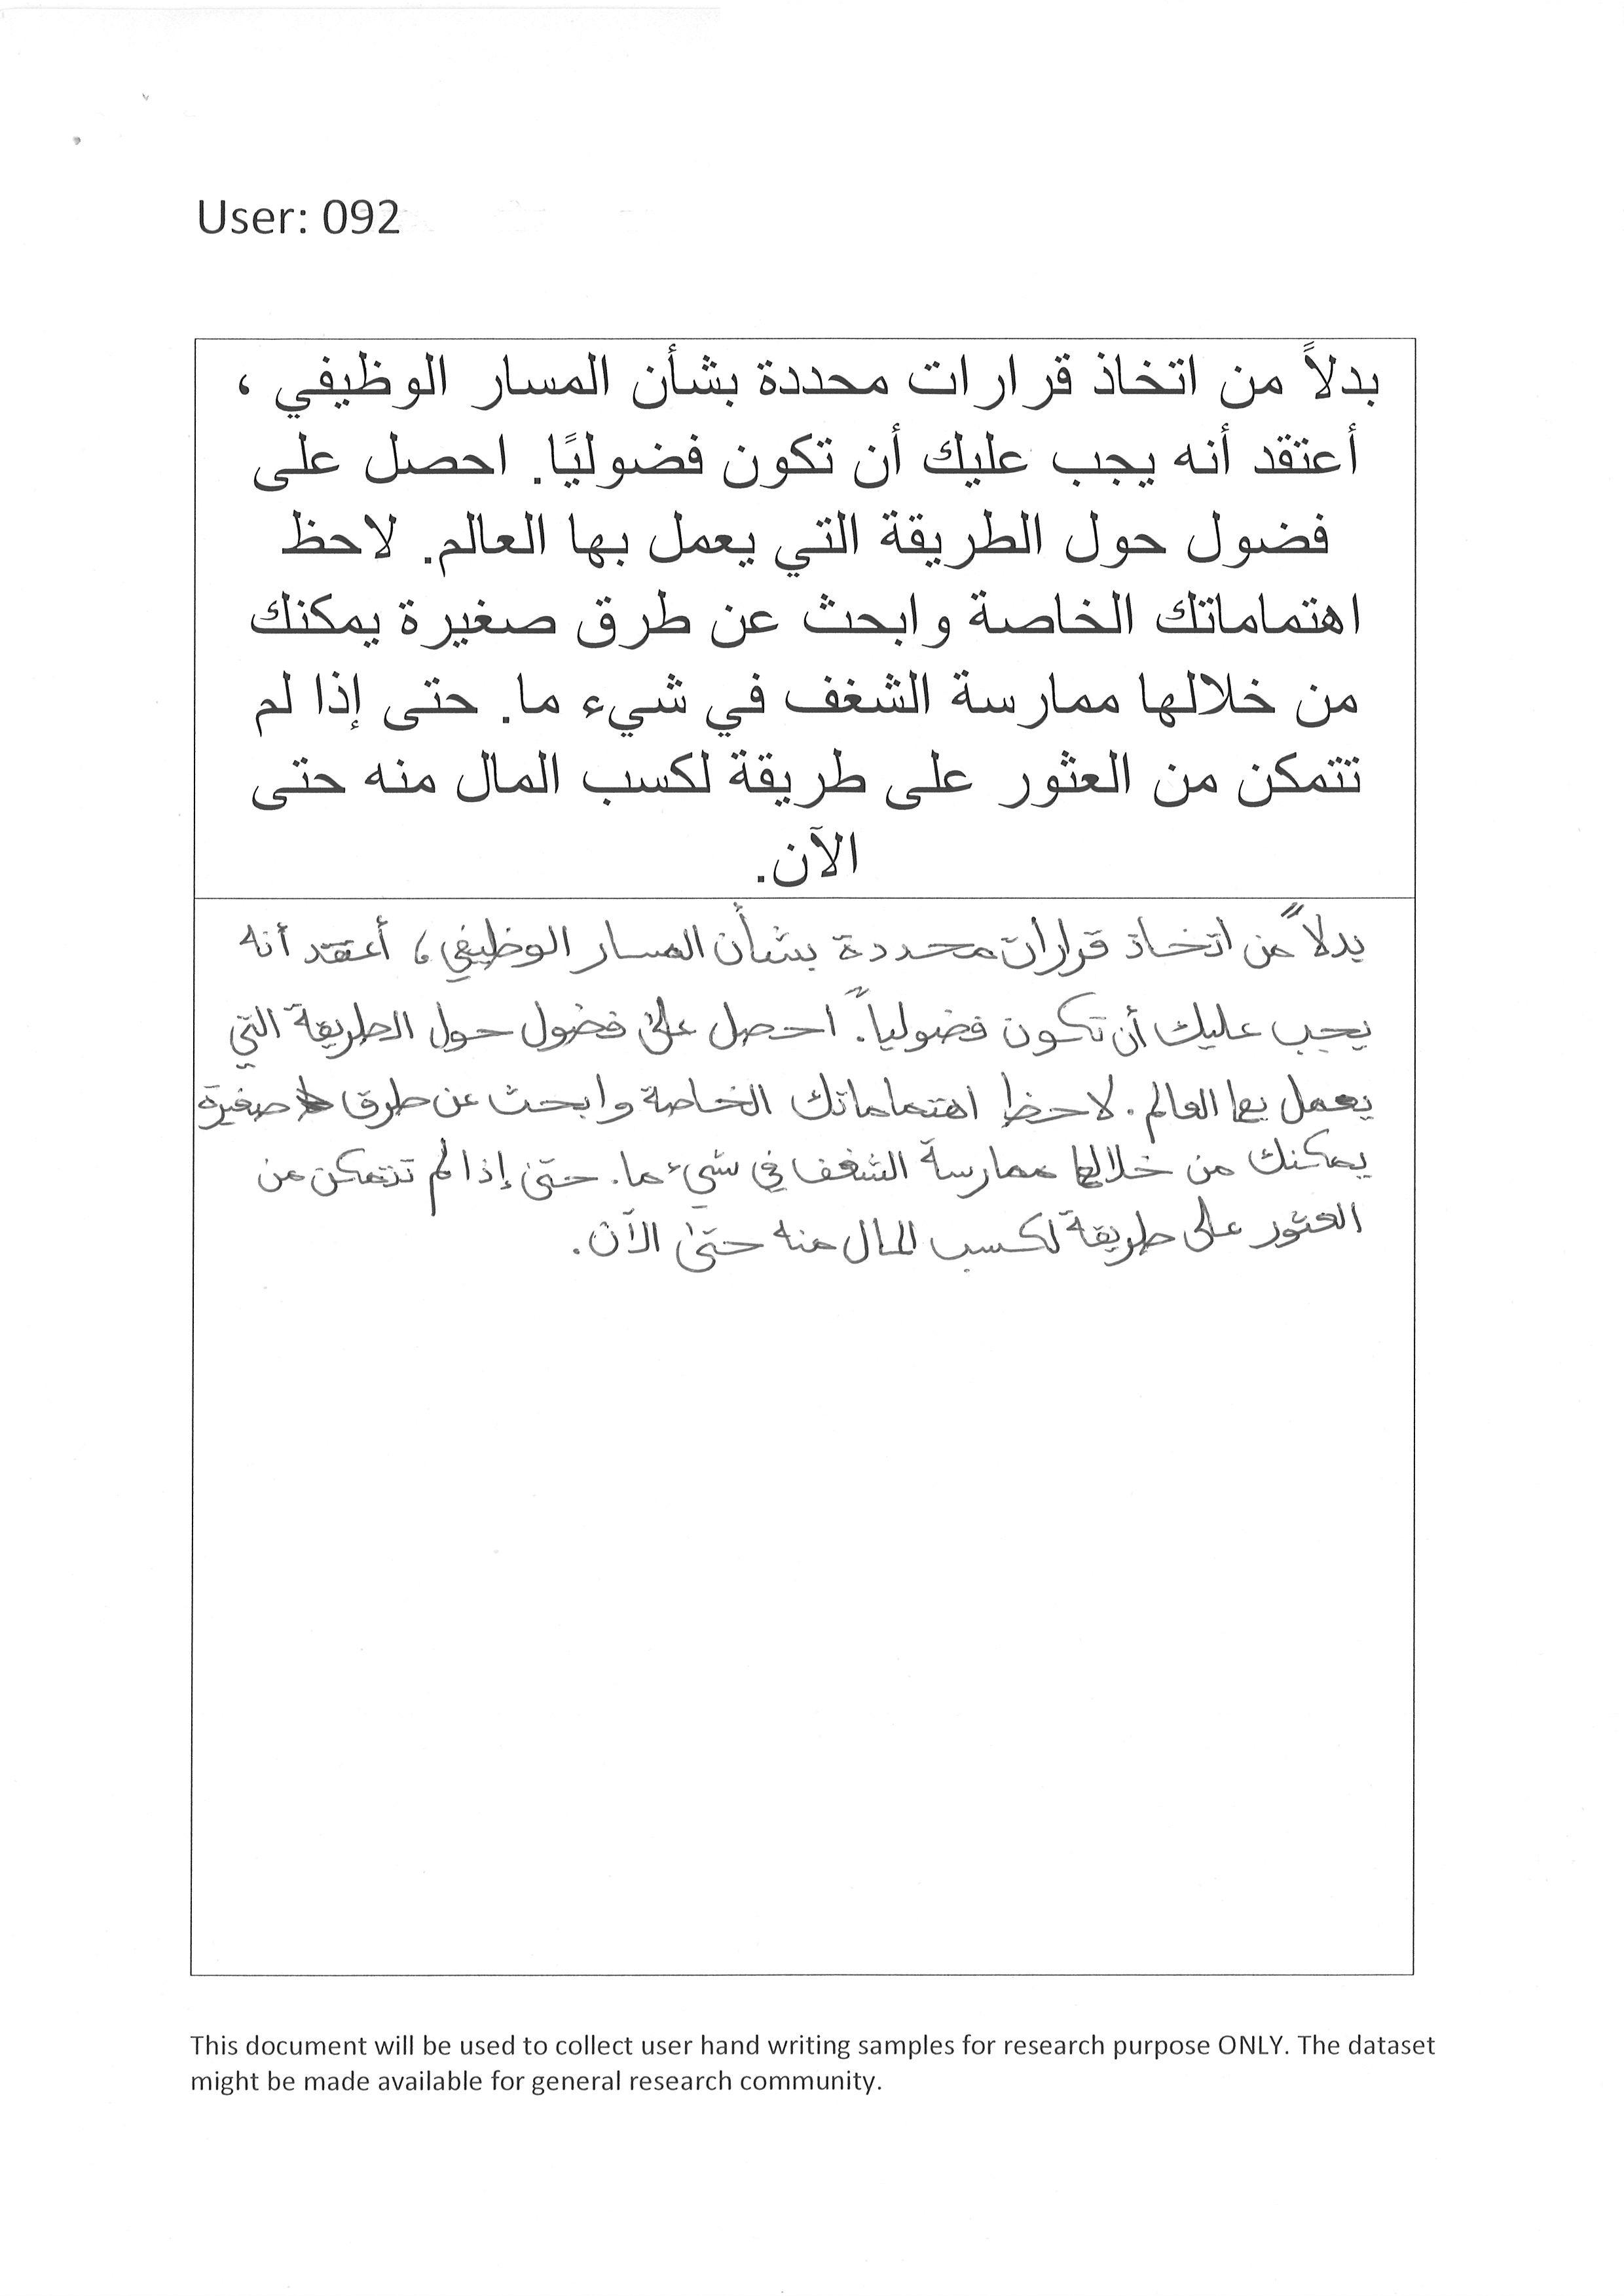 User: 092
بدلاً من اتخاذ قرارات محددة بشأن المسار الوظيفي ،
أعتقد أنه يجب عليك أن تكون فضوليًا. احصل على
فضول حول الطريقة التي يعمل بها العالم. لاحظ
اهتماماتك الخاصة وابحث عن طرق صغيرة يمكنك
من خلالها ممارسة الشغف في شيء ما. حتى إذا لم
تتمكن من العثور على طريقة لكسب المال منه حتى
الآن.
بدلاً من اتخاذ قرارات محددة بشأن المسار الوظيفي، أعتقد أنه
يجب عليك أن تكون فضولياً. احصل على فضول حول الطريقة التي
يعمل بها العالم. لاحظ اهتماماتك الخاصة وابحث عن طرق صغيرة
يمكنك من خلالها ممارسة الشغف في شيء ما. حتى إذا لم تتمكن من
العثور على طريقة لكسب المال منه حتى الآن.
This document will be used to collect user hand writing samples for research purpose ONLY. The dataset
might be made available for general research community.